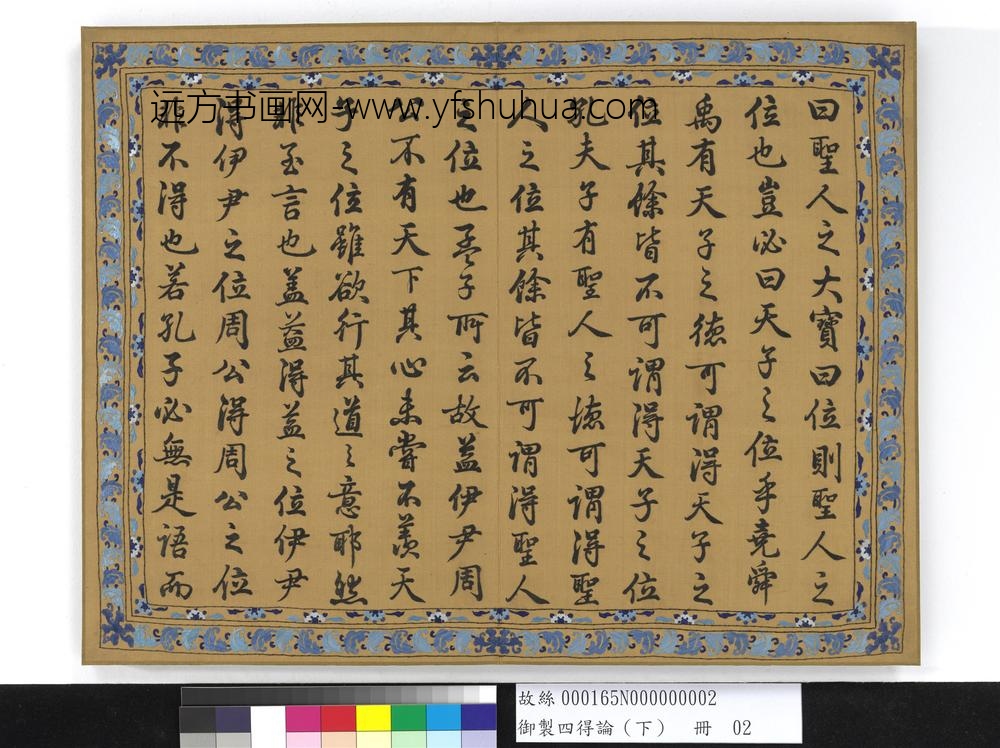 曰聖人之大寶曰位則聖人之
位也豈必曰天子之位乎堯舜
禹有天子之德可謂得天子之
位其餘皆不可謂得天子之位
孔夫子有聖人之德可謂得聖
人之位其餘皆不可謂得聖人
之位也孟子所云故益伊尹周
公不有天下其心未嘗不羨天
子之位雖欲行其道之意耶然
非至言也蓋益得益之位伊尹
得伊尹之位周公得周公之位
非不得也若孔子必無是語而
远方书画网-www.yfshuhua.com
故絲 000165N000000002
御製四得論（下） 冊 02